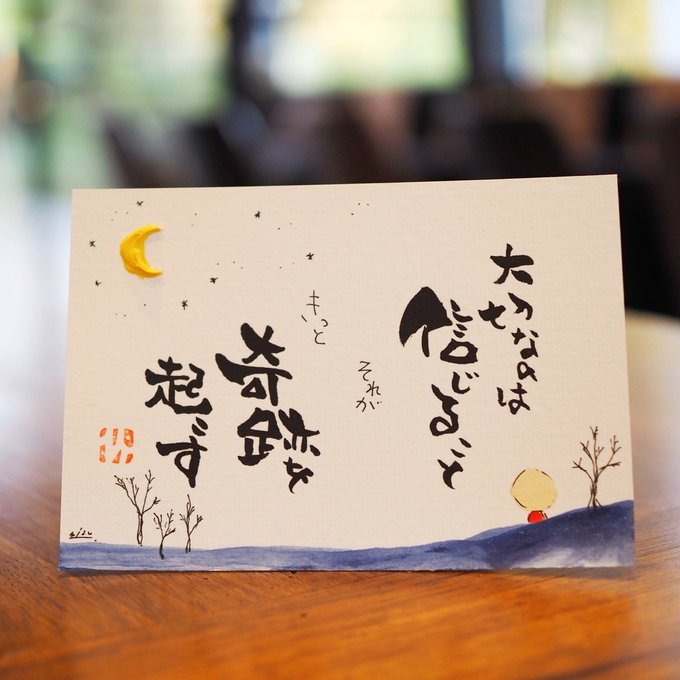 大切なのは
信じること
それが
きっと
奇跡を
起こす